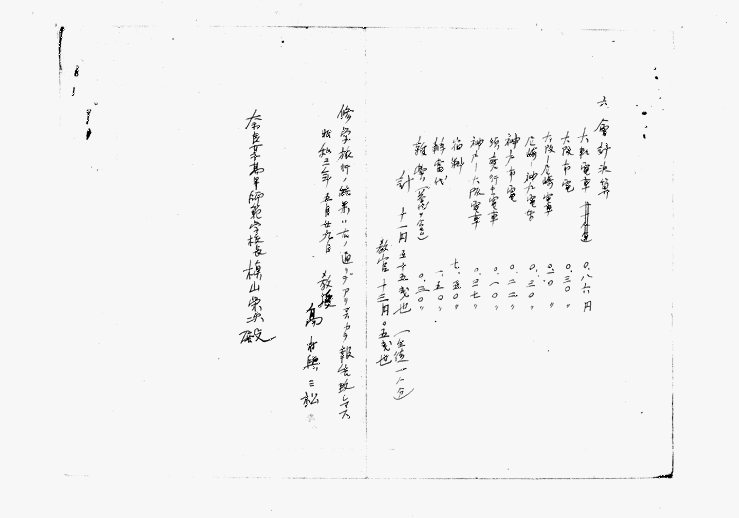 六 會計決算
大軌電車 往復 〇.八六 円
大阪市電 〇.三〇 〃
大阪-尼崎電車 〇.一〇 〃
尼崎-神戸電車 〇.三〇 〃
神戸市電 〇.二二 〃
須磨行電車 〇.一〇 〃
神戸-大阪電車 〇.三七 〃
宿料 七.五〇 〃
辨當代 一.五〇 〃
雜費 〇.三〇 〃
計 十一円五十五戔也 (生徒一人分)
教官 十三円〇五戔也
修学旅行ノ結果ハ右ノ通リデアリマスカラ報告致シマス
昭和三年五月廿九日
教授 髙村與三松
奈良女高等師範学校長 槇山栄次殿